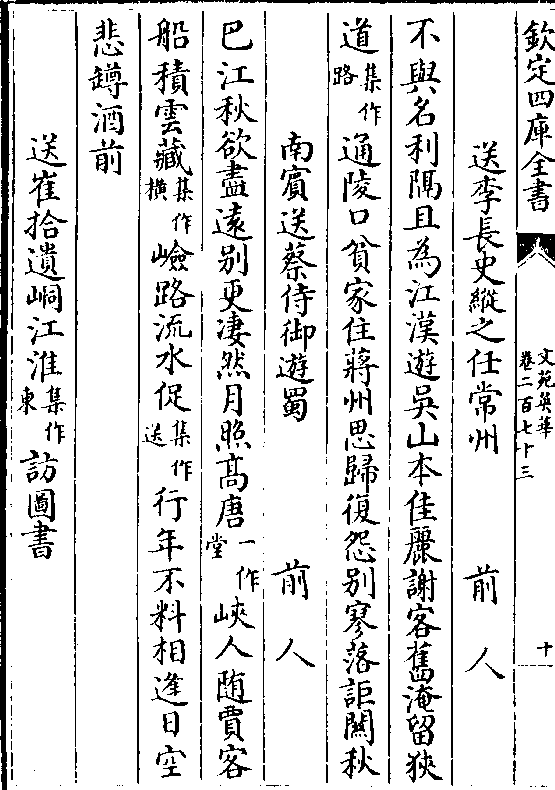 欽定四庫全書
文苑英華
卷二百七十三
十
送李長史縱之任常州 前人
不與名利隔且為江漢遊吳山本佳麗謝客舊淹留狹
道集作路通陵口貧家住蔣州思歸復怨别寥落詎關秋
南賓送蔡侍御遊蜀 前人
巴江秋欲盡遠别更凄然月照髙唐一作堂峽人随賈客
船積雲藏集作横嶮路流水促集作送行年不料相逢日空
悲罇酒前
送崔拾遺峒江淮集作東訪圖書